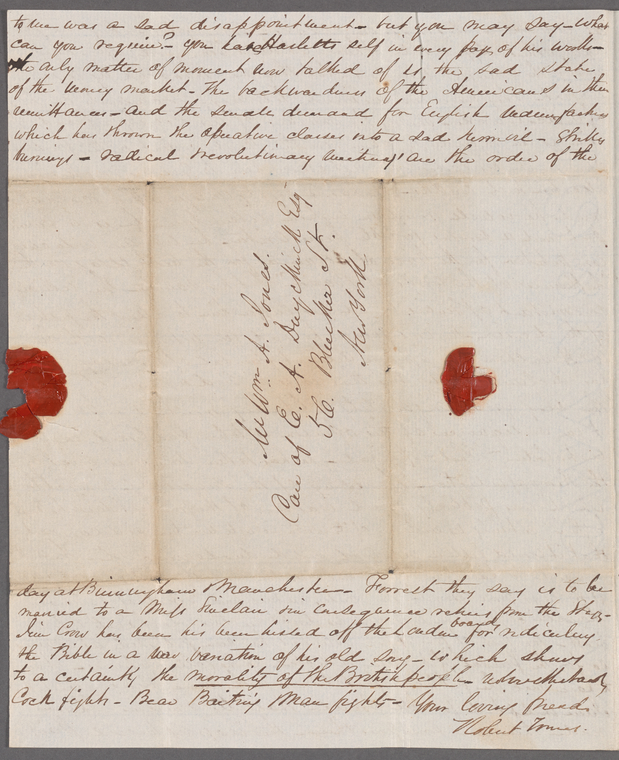 to me was a sad disappointment – but you may say – what
can you require? – You have Hazlitts self in every page of his works –
the only matter of moment now talked of is the sad state
of the money market – the backwardness of the Americans in their
remittances – and the small demand for English
which has thrown the operative classes into a sad turmoil –
burnings – radical & revolutionary meetings are the order of the
Mr Wm. A. Jones.
Care of E. A. Duyckinck Esq
56 Bleecker St.
New York
day at Birmingham & Manchester – Forrest they say is to be
married to a Miss Sinclair & in consequence retires from the Stage –
Jim Crow has been his been hissed off the London boards for ridiculing
the Bible in a new variation of his old song – which shows
to a certainty the morality of the British people – notwithstanding
Cock fights – Bear Baiting & Man fights – Your loving friend
Robert Tomes.